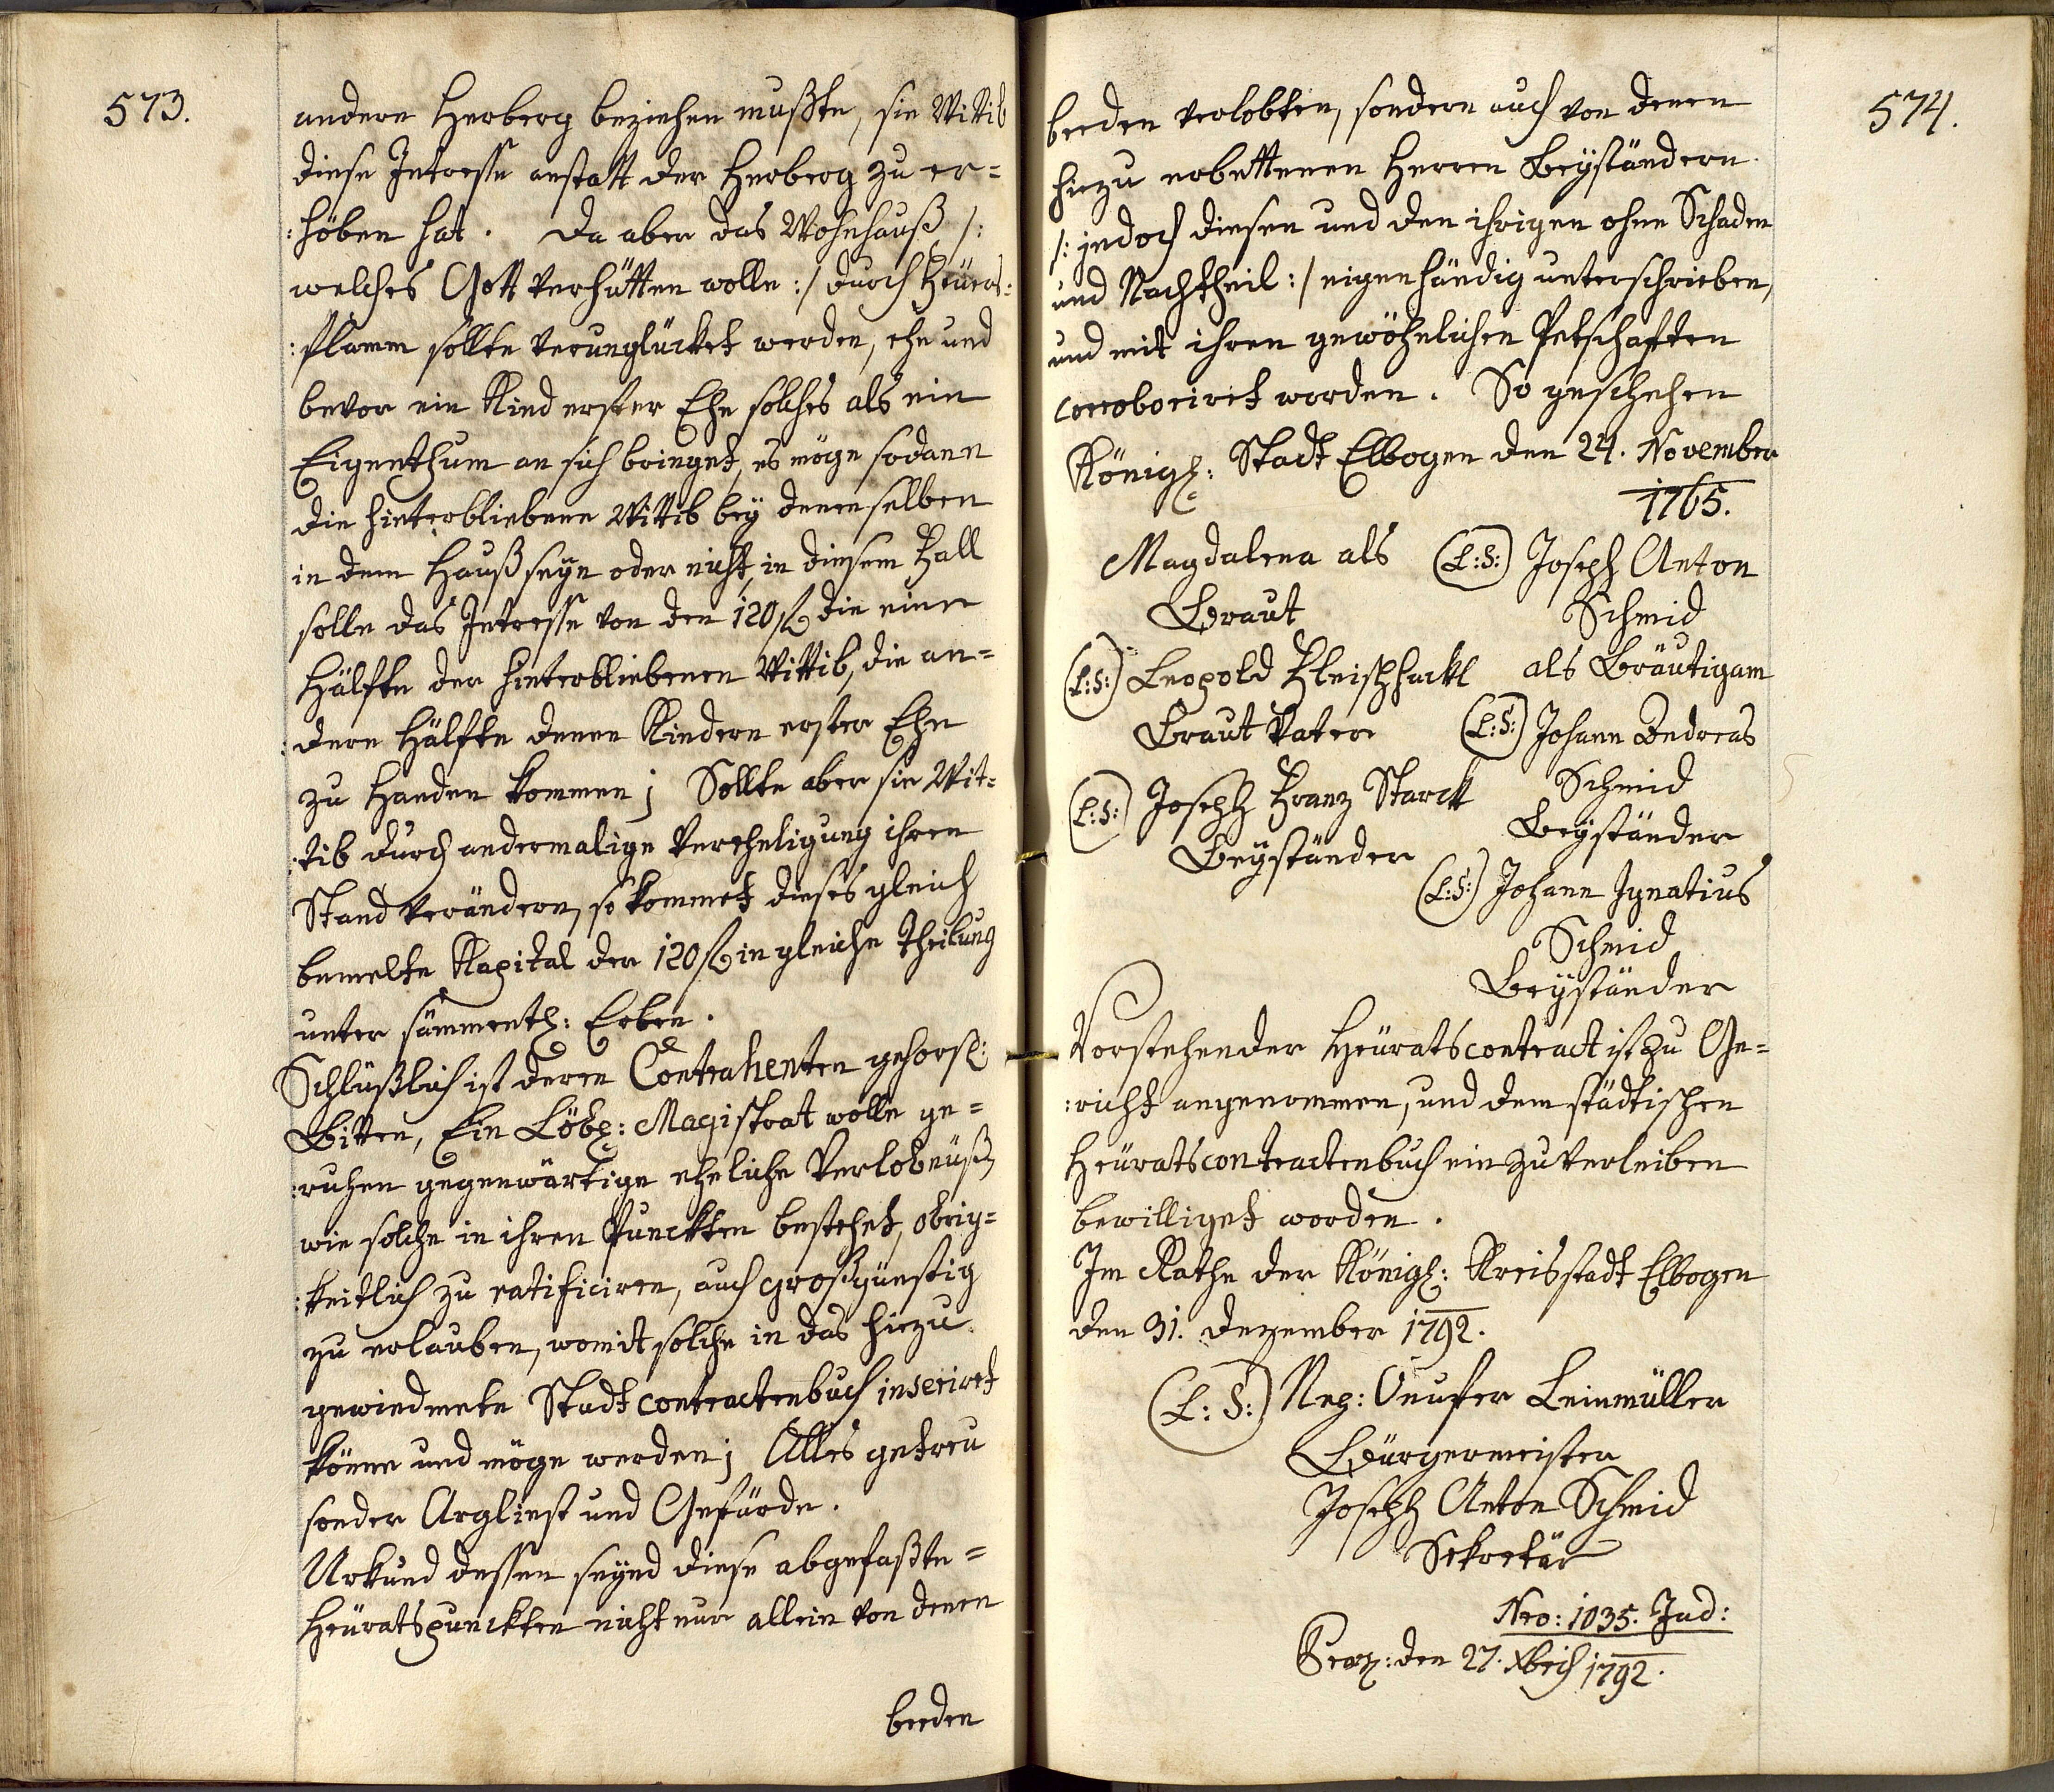 573.
andere Herberg beziehen mußte, sie Wittib
diese Intresse anstatt der Herberg zu er=
:höben hat. Da aber das Wohnhauß /:
welches Gott verhütten wolle :/ durch Feüers=
:flamm sollte verunglücket werden, ehe und
bevor ein Kind erster Ehe solches als ein
Eigenthum an sich bringet, es möge sodann
die hinterbliebene Wittib bey denenselben
in dem Hauß seyn oder nicht, in diesem Fall
solle das Intresse von den 120 f die eine
Hälfte der hinterbliebenen Wittib, die an=
:dere Hälfte denen Kindern erster Ehe
zu Handen kommen; Sollte aber sie Wit=
:tib durch andermalige Verehligung ihren
Stand verändern, so kommet dieses gleich
bemelte Kapital der 120 f in gleiche Theilung
unter sämmentl: Erben.
Schlüßlich ist deren Contrahenten gehors:
Bitten, Ein Löbl: Magistrat wolle ge=
:ruhen gegenwärtige eheliche Verlobnüß,
wie solche in ihren Punckten bestehet, obrig=
:keitlich zu ratificiren, auch großgünstig
zu erlauben, womit solche in das hiezu
gewiedmete Stadtcontractenbuch inseriret
könne und möge werden; Alles getreu
sonder Arglinst und Gefärde.
Urkund dessen seynd diese abgefaßte=
Heüratspunckten nicht nur allein von denen
beeden
574.
beeden verlobten, sondern auch von denen
hiezu erbettenen Herren Beyständern
/: jedoch diesen und den ihrigen ohne Schaden
und Nachtheil :/ eigenhändig unterschrieben,
und mit ihren gewöhnlichen Petschaften
corroboriret worden. So geschehen
Königl: Stadt Elbogen den 24. November
1765.
Magdalena als (L:S:) Joseph Anton
Braut Schmid
(L:S:) Leopold Fleischhackl als Bräutigam
Braut Vater (L:S:) Johann Andreas
(L:S:) Joseph Franz Starck Schmid
Beyständer Beyständer
(L:S:) Johann Ignatius
Schmid
Beyständer
Vorstehender Heüratscontract ist zu Ge=
:richt angenommen, und dem städtischen
Heüratscontractenbuch einzuverleiben
bewilliget worden.
Im Rathe der Königl: Kreisstadt Elbogen
den 31. Dezember 1792.
(L:S:) Nep: Onufer Leinmüller
Bürgermeister
Joseph Anton Schmid
Sekretär
Nro: 1035. Jud:
den 27. Xbris 1792.